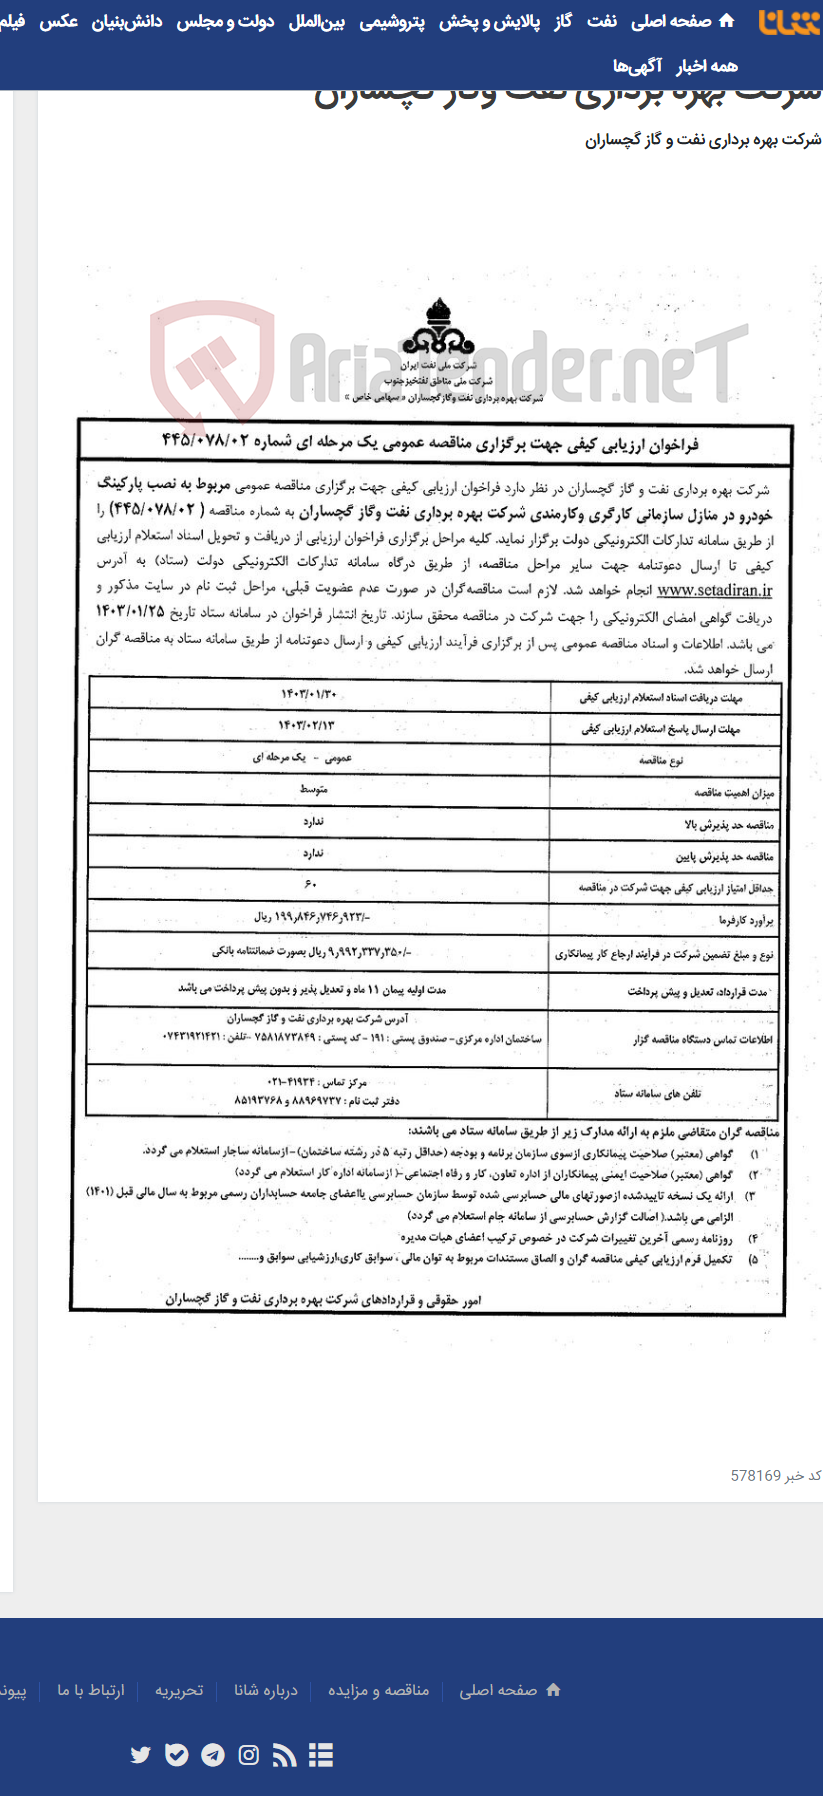 شانا
صفحه اصلی نفت گاز پالایش و پخش پتروشیمی بین‌الملل دولت و مجلس دانش‌بنیان عکس فیلم
همه اخبار آگهی‌ها
شرکت بهره برداری نفت وگاز گچساران
شرکت بهره برداری نفت و گاز گچساران
AriaTender.neT
شرکت ملی نفت ایران
شرکت ملی مناطق نفتخیزجنوب
شرکت بهره برداری نفت وگازگچساران « سهامی خاص »
فراخوان ارزیابی کیفی جهت برگزاری مناقصه عمومی یک مرحله ای شماره ۴۴۵/۰۷۸/۰۲
شرکت بهره برداری نفت و گاز گچساران در نظر دارد فراخوان ارزیابی کیفی جهت برگزاری مناقصه عمومی مربوط به نصب پارکینگ
خودرو در منازل سازمانی کارگری وکارمندی شرکت بهره برداری نفت وگاز گچساران به شماره مناقصه ( ۴۴۵/۰۷۸/۰۲) را
از طریق سامانه تدارکات الکترونیکی دولت برگزار نماید. کلیه مراحل برگزاری فراخوان ارزیابی از دریافت و تحویل اسناد استعلام ارزیابی
کیفی تا ارسال دعوتنامه جهت سایر مراحل مناقصه، از طریق درگاه سامانه تدارکات الکترونیکی دولت (ستاد) به آدرس
www.setadiran.ir انجام خواهد شد. لازم است مناقصه‌گران در صورت عدم عضویت قبلی، مراحل ثبت نام در سایت مذکور و
دریافت گواهی امضای الکترونیکی را جهت شرکت در مناقصه محقق سازند. تاریخ انتشار فراخوان در سامانه ستاد تاریخ ۱۴۰۳/۰۱/۲۵
می باشد. اطلاعات و اسناد مناقصه عمومی پس از برگزاری فرآیند ارزیابی کیفی و ارسال دعوتنامه از طریق سامانه ستاد به مناقصه گران
ارسال خواهد شد.
مهلت دریافت اسناد استعلام ارزیابی کیفی ۱۴۰۳/۰۱/۳۰
مهلت ارسال پاسخ استعلام ارزیابی کیفی ۱۴۰۳/۰۲/۱۳
نوع مناقصه عمومی - یک مرحله ای
میزان اهمیت مناقصه متوسط
مناقصه حد پذیرش بالا ندارد
مناقصه حد پذیرش پایین ندارد
حداقل امتیاز ارزیابی کیفی جهت شرکت در مناقصه ۶۰
برآورد کارفرما ۱۹۹٫۸۴۶٫۷۴۶٫۹۲۳/- ریال
نوع و مبلغ تضمین شرکت در فرآیند ارجاع کار پیمانکاری ۹٫۹۹۲٫۳۳۷٫۳۵۰/- ریال بصورت ضمانتنامه بانکی
مدت قرارداد، تعدیل و پیش پرداخت مدت اولیه پیمان ۱۱ ماه و تعدیل پذیر و بدون پیش پرداخت می باشد
آدرس شرکت بهره برداری نفت و گاز گچساران
اطلاعات تماس دستگاه مناقصه گزار ساختمان اداره مرکزی- صندوق پستی : ۱۹۱ - کد پستی : ۷۵۸۱۸۷۳۸۴۹ -تلفن : ۰۷۴۳۱۹۲۱۴۲۱
مرکز تماس : ۴۱۹۳۴-۰۲۱
تلفن های سامانه ستاد دفتر ثبت نام : ۸۸۹۶۹۷۳۷ و ۸۵۱۹۳۷۶۸
مناقصه گران متقاضی ملزم به ارائه مدارک زیر از طریق سامانه ستاد می باشند:
۱) گواهی (معتبر) صلاحیت پیمانکاری ازسوی سازمان برنامه و بودجه (حداقل رتبه ۵ در رشته ساختمان) - ازسامانه ساجار استعلام می گردد.
۲) گواهی (معتبر) صلاحیت ایمنی پیمانکاران از اداره تعاون، کار و رفاه اجتماعی-( ازسامانه اداره کار استعلام می گردد)
۳) ارائه یک نسخه تاییدشده ازصورتهای مالی حسابرسی شده توسط سازمان حسابرسی یااعضای جامعه حسابداران رسمی مربوط به سال مالی قبل (۱۴۰۱)
الزامی می باشد.( اصالت گزارش حسابرسی از سامانه جام استعلام می گردد)
۴) روزنامه رسمی آخرین تغییرات شرکت در خصوص ترکیب اعضای هیات مدیره
۵) تکمیل فرم ارزیابی کیفی مناقصه گران و الصاق مستندات مربوط به توان مالی ، سوابق کاری،ارزشیابی سوابق و.......
امور حقوقی و قراردادهای شرکت بهره برداری نفت و گاز گچساران
کد خبر 578169
صفحه اصلی مناقصه و مزایده درباره شانا تحریریه ارتباط با ما پیوند